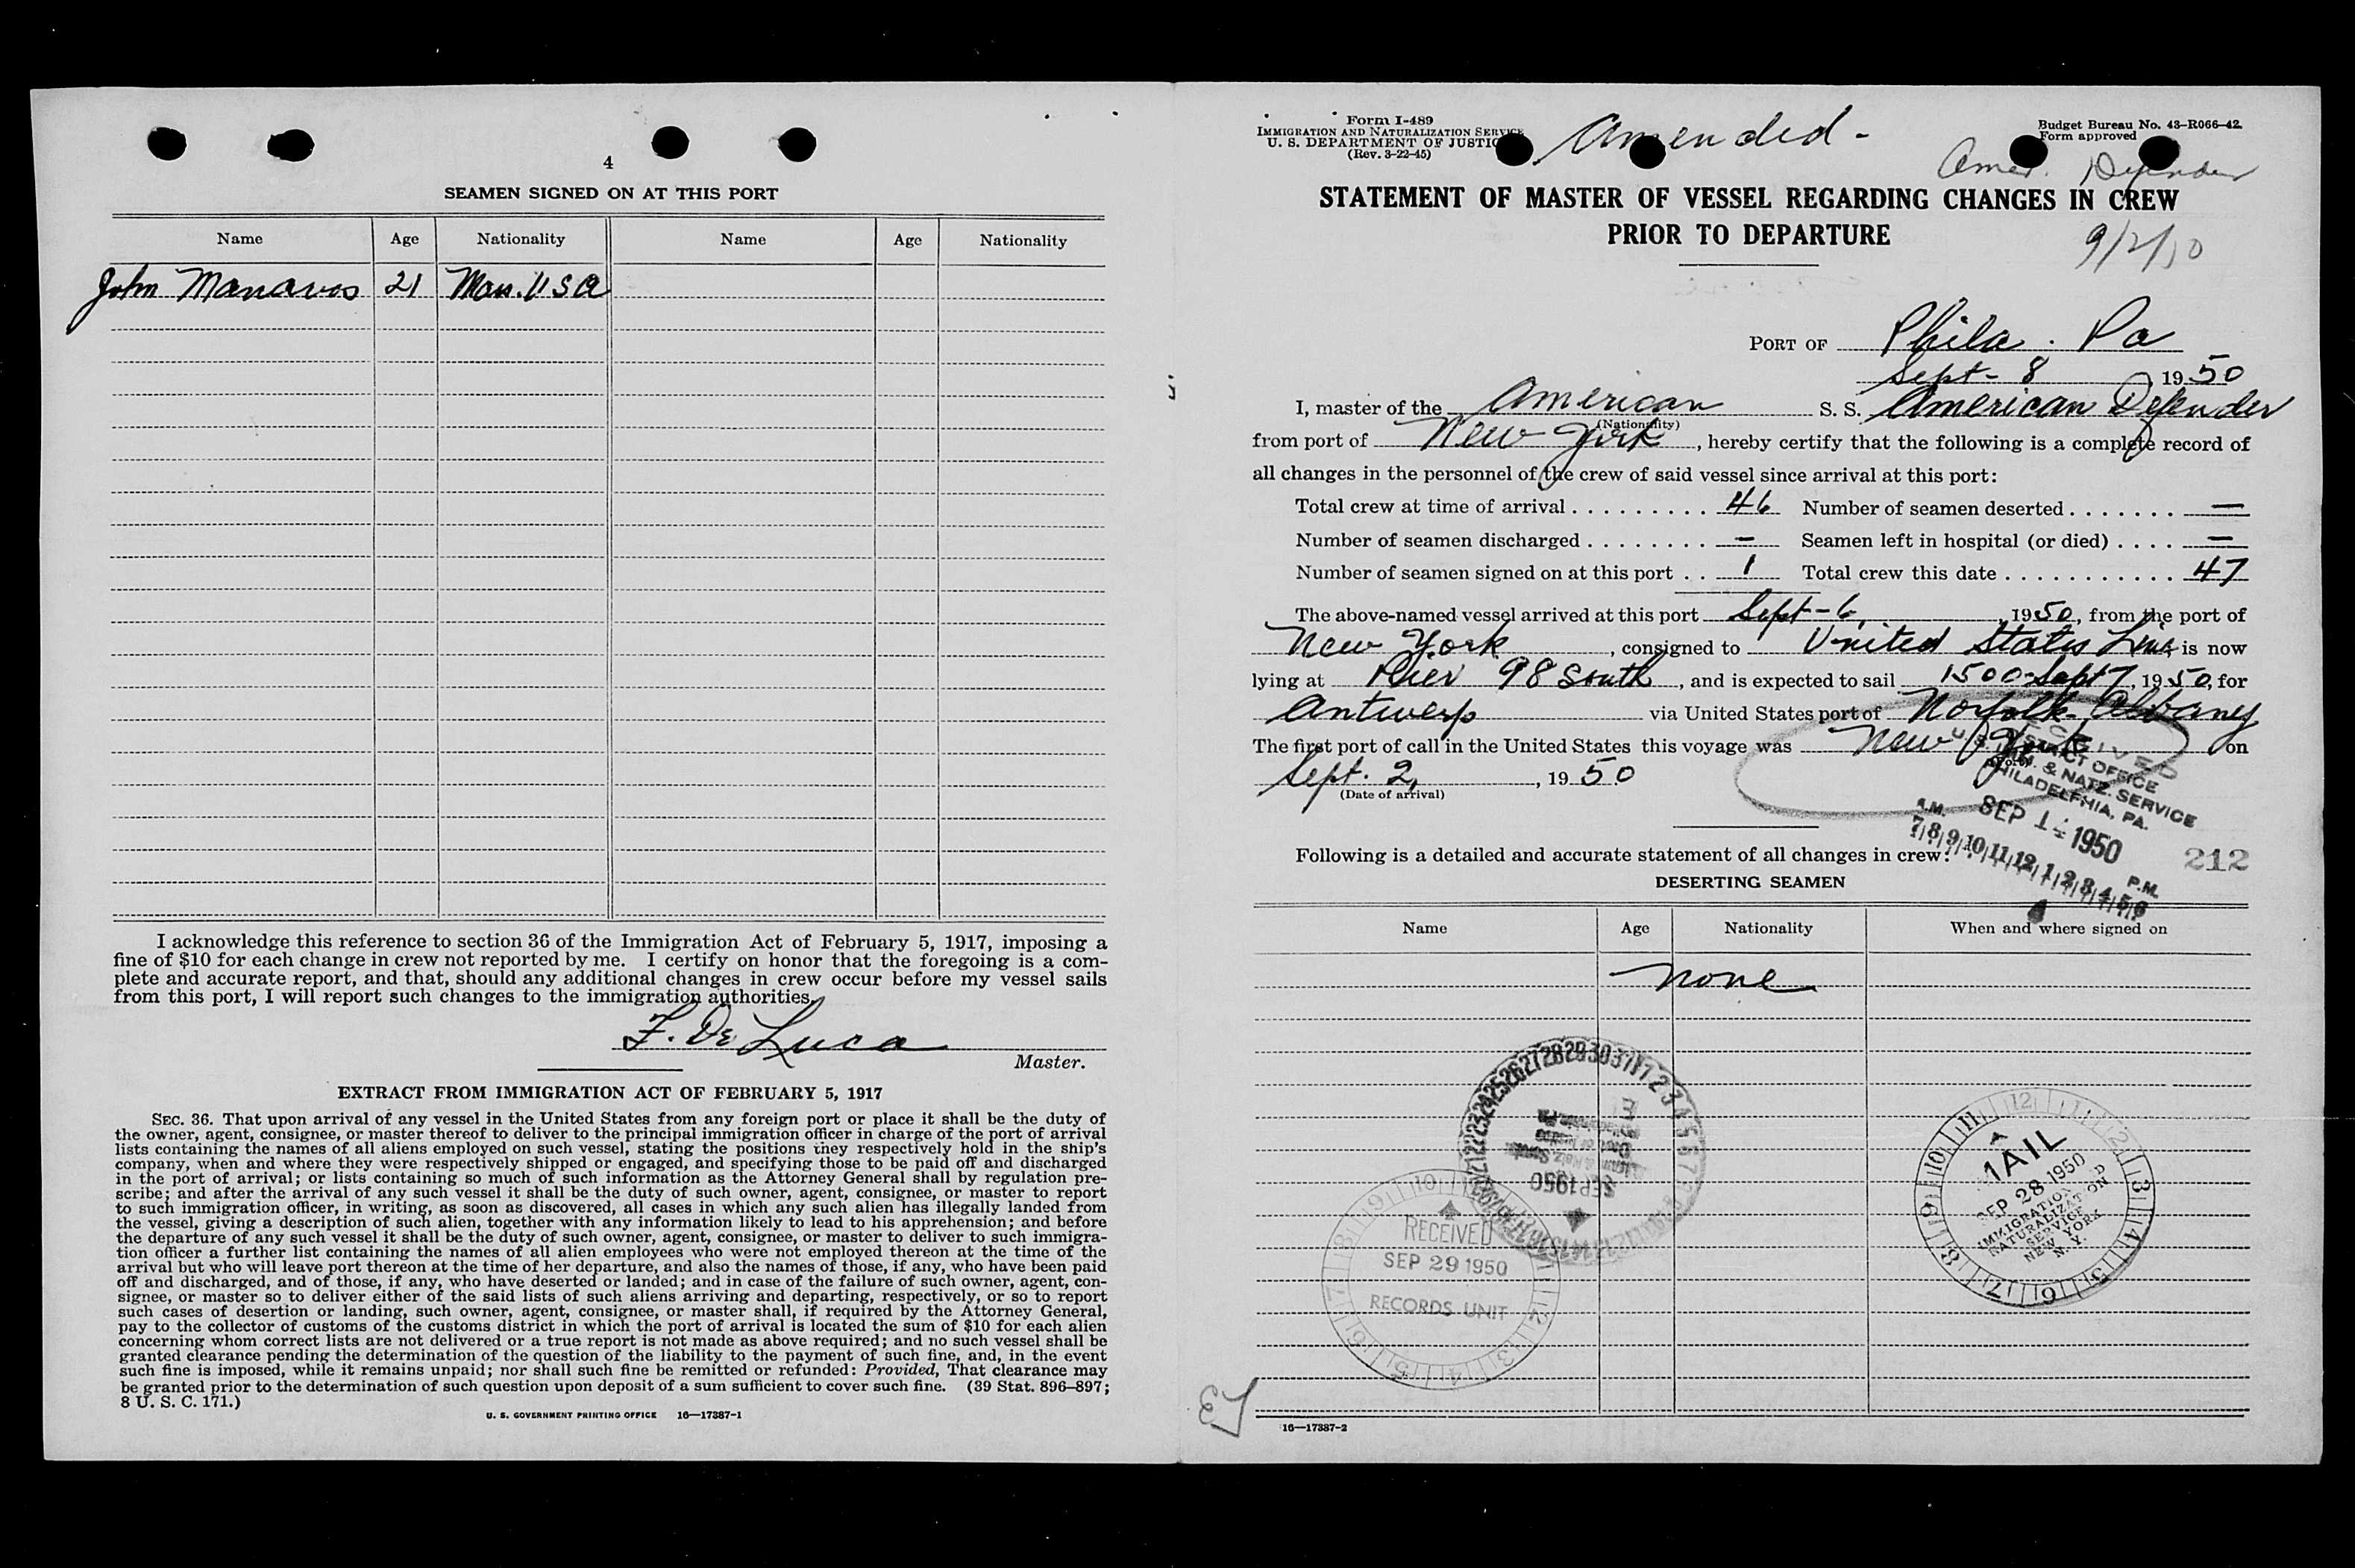 4
SEAMEN SIGNED ON AT THIS PORT
Name Age Nationality Name Age Nationality
John Manavos 21 Mass. USA
I acknowledge this reference to section 36 of the Immigration Act of February 5, 1917, imposing a
fine of $10 for each change in crew not reported by me. I certify on honor that the foregoing is a com-
plete and accurate report, and that, should any additional changes in crew occur before my vessel sails
from this port, I will report such changes to the immigration authorities.
F. De Luca
Master.
EXTRACT FROM IMMIGRATION ACT OF FEBRUARY 5, 1917
SEC. 36. That upon arrival of any vessel in the United States from any foreign port or place it shall be the duty of
the owner, agent, consignee, or master thereof to deliver to the principal immigration officer in charge of the port of arrival
lists containing the names of all aliens employed on such vessel, stating the positions they respectively hold in the ship's
company, when and where they were respectively shipped or engaged, and specifying those to be paid off and discharged
in the port of arrival; or lists containing so much of such information as the Attorney General shall by regulation pre-
scribe; and after the arrival of any such vessel it shall be the duty of such owner, agent, consignee, or master to report
to such immigration officer, in writing, as soon as discovered, all cases in which any such alien has illegally landed from
the vessel, giving a description of such alien, together with any information likely to lead to his apprehension; and before
the departure of any such vessel it shall be the duty of such owner, agent, consignee, or master to deliver to such immigra-
tion officer a further list containing the names of all alien employees who were not employed thereon at the time of the
arrival but who will leave port thereon at the time of her departure, and also the names of those, if any, who have been paid
off and discharged, and of those, if any, who have deserted or landed; and in case of the failure of such owner, agent, con-
signee, or master so to deliver either of the said lists of such aliens arriving and departing, respectively, or so to report
such cases of desertion or landing, such owner, agent, consignee, or master shall, if required by the Attorney General,
pay to the collector of customs of the customs district in which the port of arrival is located the sum of $10 for each alien
concerning whom correct lists are not delivered or a true report is not made as above required; and no such vessel shall be
granted clearance pending the determination of the question of the liability to the payment of such fine, and, in the event
such fine is imposed, while it remains unpaid; nor shall such fine be remitted or refunded: Provided, That clearance may
be granted prior to the determination of such question upon deposit of a sum sufficient to cover such fine. (39 Stat. 896–897;
8 U. S. C. 171.)
U. S. GOVERNMENT PRINTING OFFICE 16—17387-1
Form I-489
IMMIGRATION AND NATURALIZATION SERVICE
U. S. DEPARTMENT OF JUSTICE
(Rev. 3-22-45)
Amended -
Budget Bureau No. 43-R066-42.
Form approved
Amer. Defender
STATEMENT OF MASTER OF VESSEL REGARDING CHANGES IN CREW
PRIOR TO DEPARTURE
9/2/50
PORT OF Phila. Pa
Sept- 8 1950
I, master of the American S. S. American Defender
(Nationality)
from port of New York, hereby certify that the following is a complete record of
all changes in the personnel of the crew of said vessel since arrival at this port:
Total crew at time of arrival . . . . . . . . . 46 Number of seamen deserted . . . . . . . —
Number of seamen discharged . . . . . . . . — Seamen left in hospital (or died) . . . . —
Number of seamen signed on at this port . . 1 Total crew this date . . . . . . . . . . . 47
The above-named vessel arrived at this port Sept-6, 1950, from the port of
New York, consigned to United States Lines is now
lying at Pier 98 South, and is expected to sail 1500 Sept 7, 1950, for
Antwerp via United States port of Norfolk- Albany
The first port of call in the United States this voyage was New York on
Sept. 2, 1950
(Date of arrival)
RECEIVED
DISTRICT OFFICE
IMM. & NATZ. SERVICE
PHILADELPHIA, PA.
SEP 14 1950
A.M. 7|8|9|10|11|12|1|2|3|4|5|6 P.M.
212
Following is a detailed and accurate statement of all changes in crew:
DESERTING SEAMEN
Name Age Nationality When and where signed on
None
RECEIVED
SEP 29 1950
RECORDS UNIT
MAIL
SEP 28 1950
IMMIGRATION AND
NATURALIZATION
SERVICE
NEW YORK
N. Y.
16—17387-2